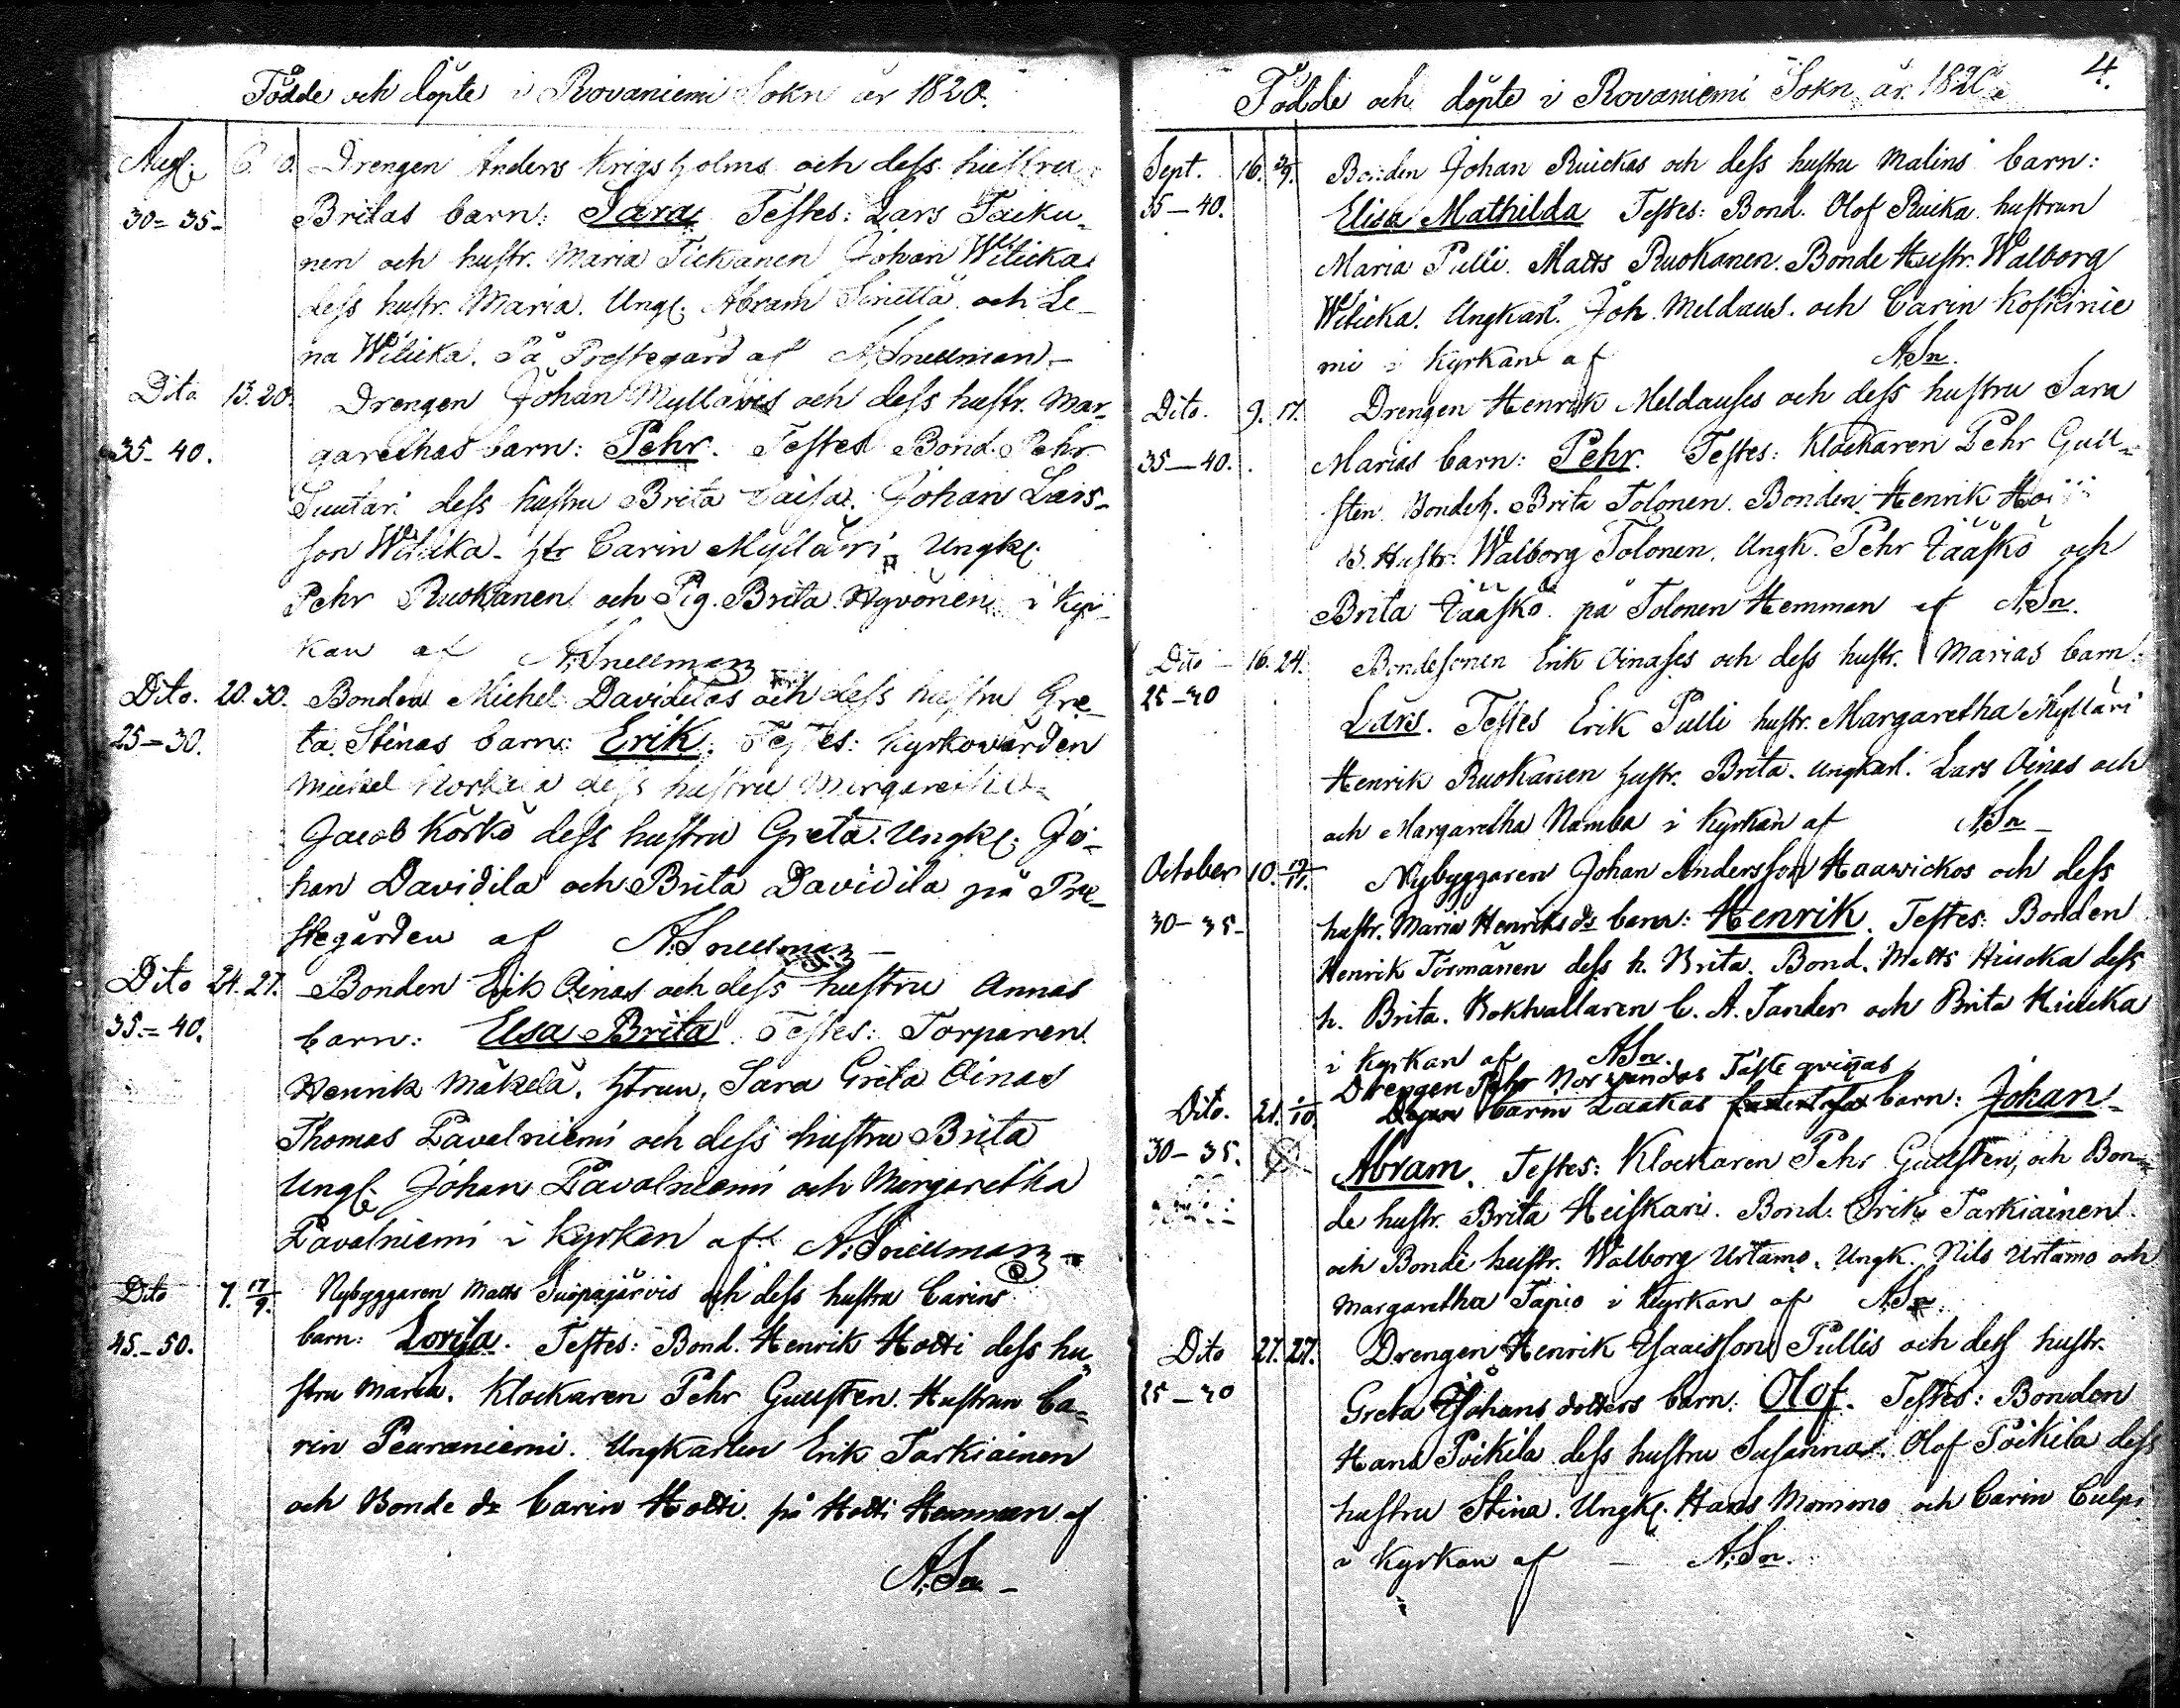 Födde och döpte i Rovaniemi Sokn år 1820.
Aug. 6. Drengen Anders Krigsholms och dess hustru
30=35- Britas barn: Sara Testes: Lars Taiku-
nen och hustr. Maria Tickanen Johan Wilicka
dess hustr. Maria. Ungk. Abram Sinetta och Le-
na Wilicka. På Prestegård af A. Snellman.
Dito 13. 20. Drengen Johan Mylläris och dess hustr. Mar-
35-40. garethas barn: Pehr. Testes Bond. Pehr
Suutari dess hustru Brita Caisa. Johan Lars-
son Wilicka. htr Carin Mylläri, Ungk.
Pehr Ruokanen och Pig. Brita Hyvönen i Kyr-
kan af A. Snellman
Dito. 20. 30. Bonden Michel Davidilas och dess hustru Gre-
25=30. ta Stinas barn: Erik. Testes: Kyrkovärden
Michel dess hustru Margaretha
Jacob Körkö dess hustru Greta. Ungk. Jo-
han Davidila och Brita Davidila på Pre-
stegården af A. Snellman
Dito 24. 27. Bonden Erik Oinas och dess hustru Annas
35=40. barn: Elsa Brita. Testes: Torparen
Henrik Mäkelä. htrun, Sara Greta Oinas
Thomas Pavalniemi och dess hustru Brita
Ungk. Johan Pavalniemi och Margaretha
Pavalniemi i Kyrkan af A. Snellman
Dito 7. 17/9. Nybyggaren Matts Suopajärvis och dess hustru Carins
45-50. barn: Lovisa. Testes: Bond. Henrik Hotti dess hu-
stru Maria. Klockaren Pehr Gullsten. Hustrun Ca-
rin Peuraniemi. Ungkarlen Erik Tarkiainen
och Bonde dr Carin Hotti. på Hotti Hemman af
A. Sn
4.
Födde och döpte i Rovaniemi Sokn år 1820
Sept. 16. Bonden Johan Ruickas och dess hustru Malins barn:
35-40. Elisa Mathilda Testes: Bond. Olof Ruika hustrun
Maria Pulli. Matts Ruokanen. Bonde Hustr. Walborg
Wilicka. Ungkarl. Joh. Meldaus. och Carin Koskinie
mi i Kyrkan af A. Sn.
Dito. 9. 17. Drengen Henrik Meldauses och dess hustru Sara
35-40. Marias barn: Pehr. Testes: Klockaren Pehr Gull-
sten Bondeh. Brita Tolonen. Bonden Henrik
B. Hustr. Walborg Tolonen. Ungk. Pehr Jääskö och
Brita Jääskö på Tolonen Hemman af A. Sn.
Dito 16. 24. Bondesonen Erik Oinases och dess hustr. Marias barn:
25-30 Lars. Testes Erik Pulli hustr. Margaretha Mylläri
Henrik Ruokanen hustr. Brita. Ungkarl. Lars Oinas och
och Margaretha Namba i Kyrkan af A. Sn
October 10. Nybyggaren Johan Andersson Haawickos och dess
30-35- hustr. Maria Henriksdr barn: Henrik. Testes: Bonden
Henrik Törmänen dess h. Brita. Bond. Matts Hiucka dess
h. Brita. Bokhallaren C. A. Sander och Brita Hiucka
i Kyrkan af A. Sn.
Drengen Pehr Norvandas Fäste qvinas
Dito. 21. Carin Laakas barn: Johan
30-35. Abram. Testes: Klockaren Pehr Gullsten, och Bon-
de hustr. Brita Heiskari. Bond. Erik Tarkiainen
och Bonde hustr. Walborg Urtamo. Ungk. Nils Urtamo och
Margaretha Tapio i Kyrkan af A. Sn
Dito 27. 27. Drengen Henrik Isaaisson Pullis och dess hustr.
25-30 Greta Johans dotters barn: Olof. Testes: Bonden
Hans Poikila dess hustru Susanna. Olof Poikila dess
hustru Stina. Ungk. Hans Mommo och Carin
i Kyrkan af A. Sn.